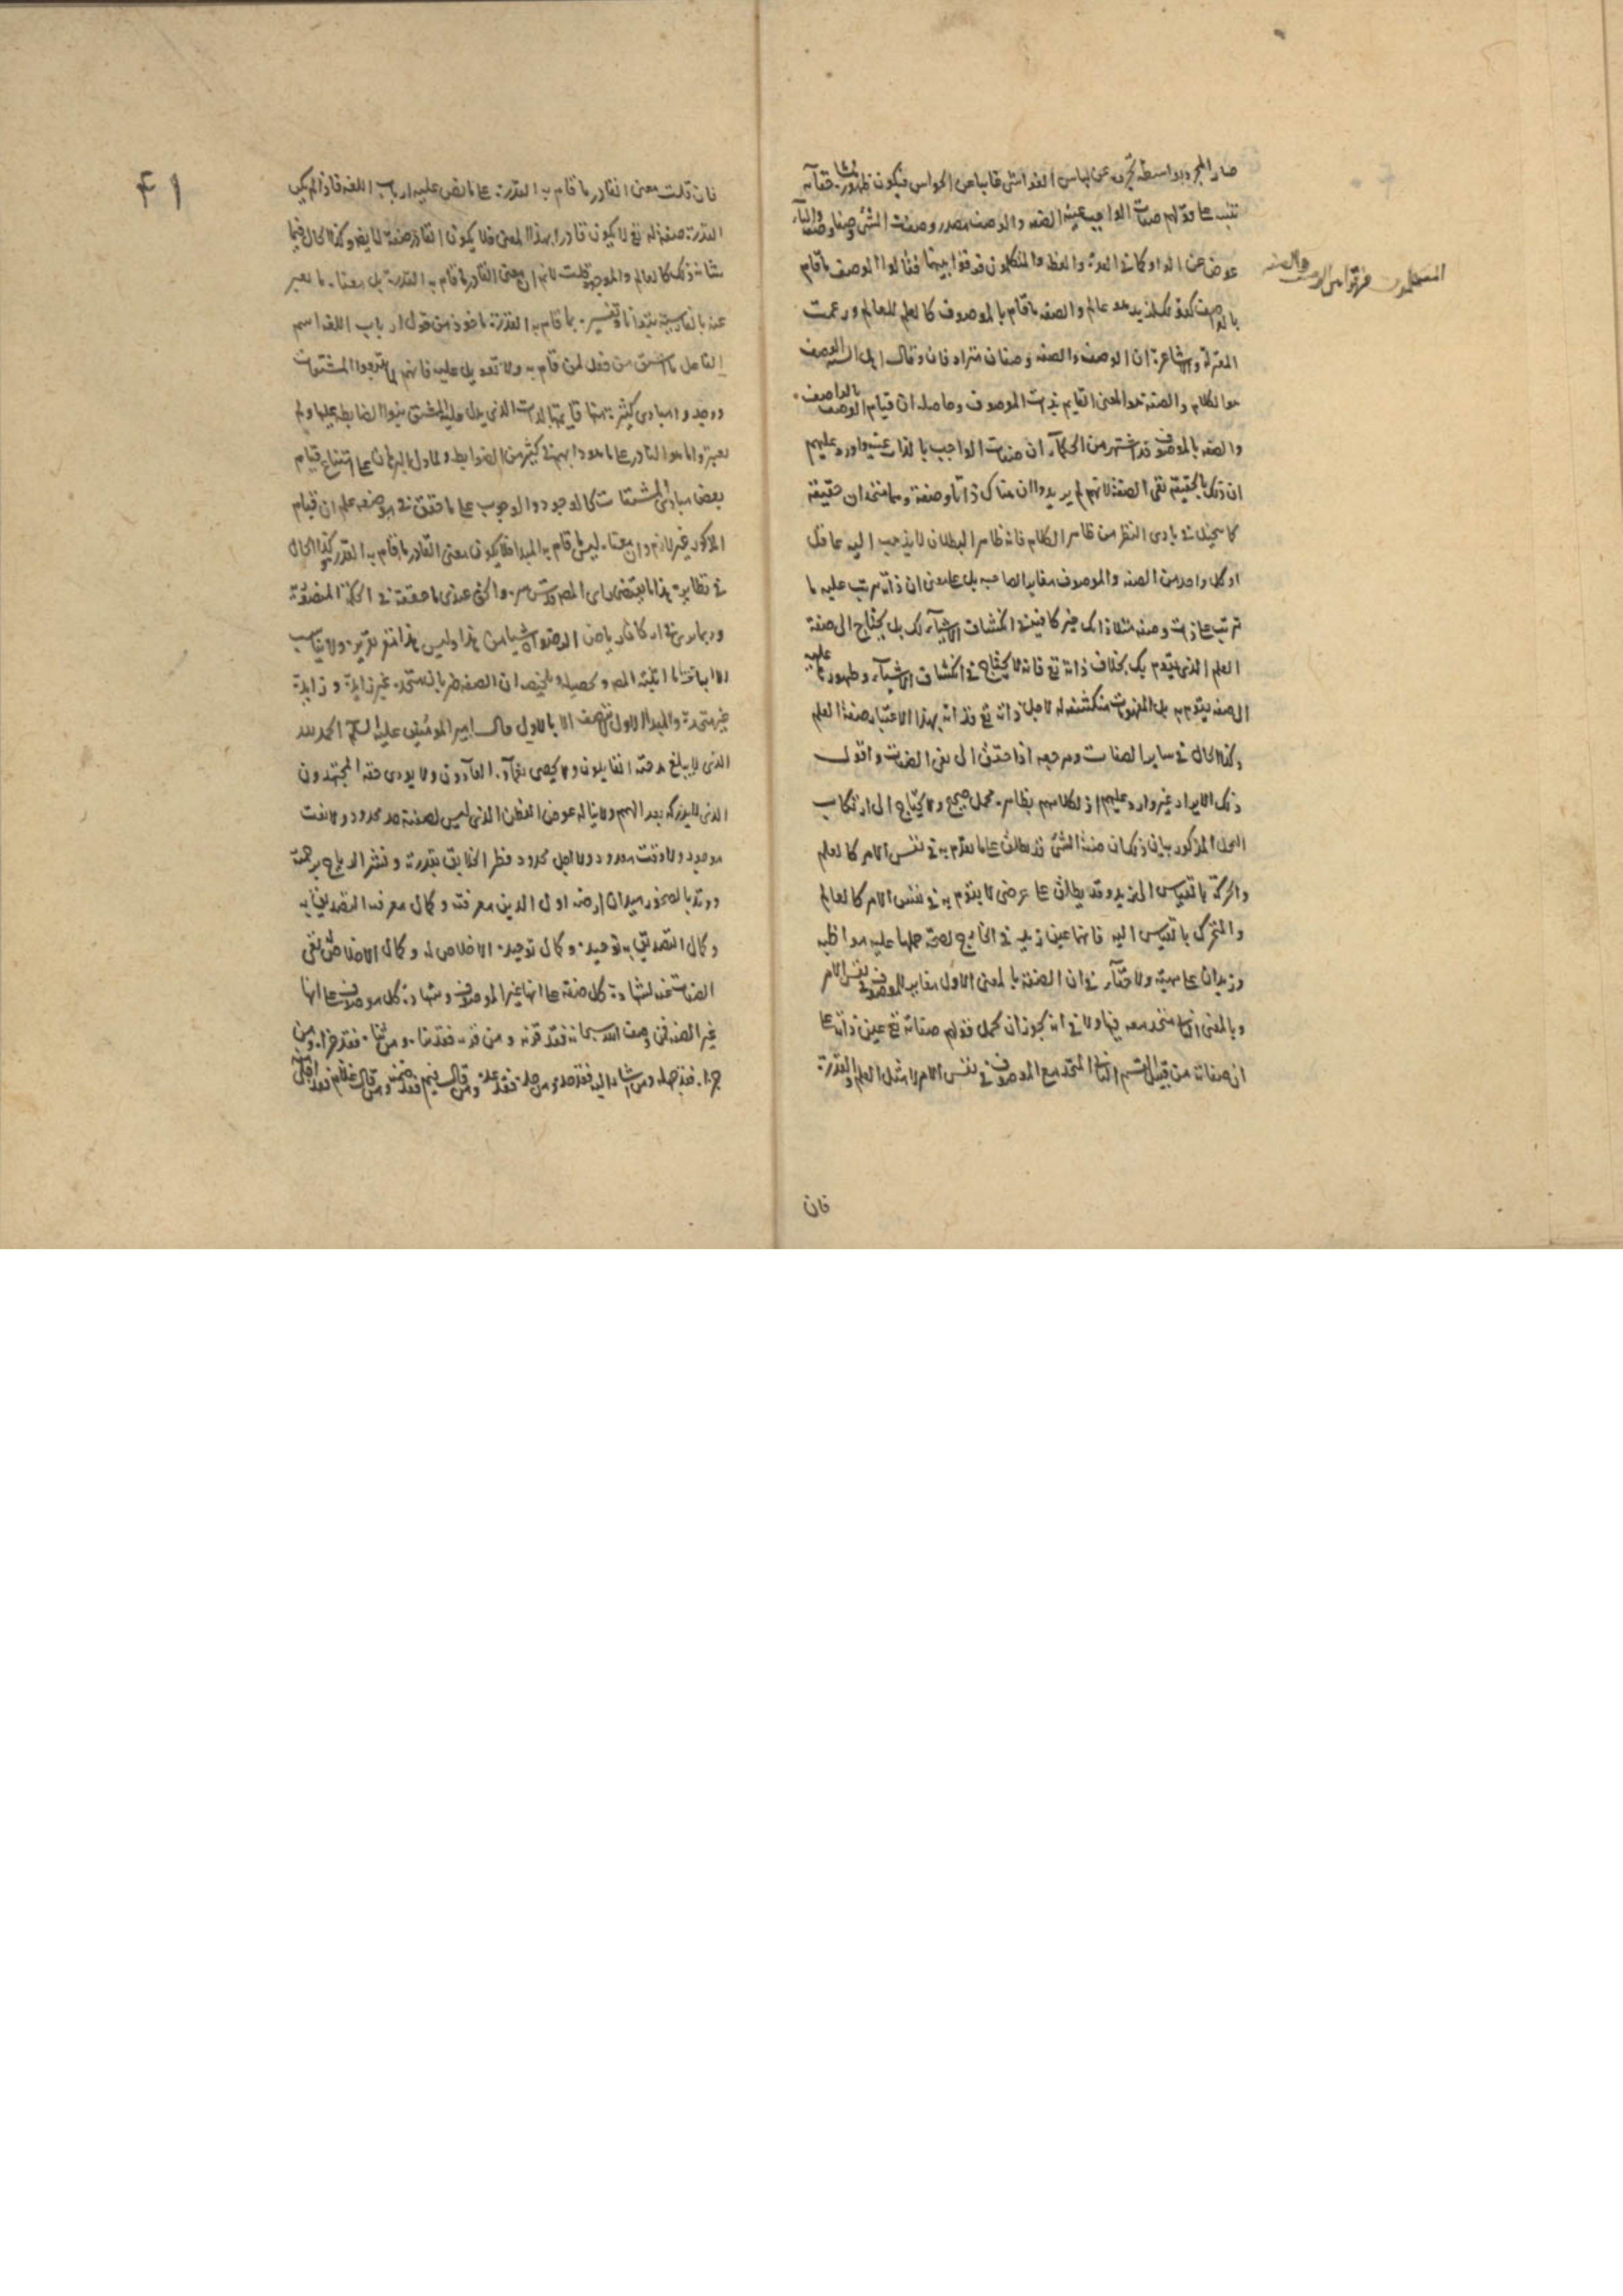 صار المجرد بواسطة تجرده عن لباس الغواشى غايبا عن الحواس فيكون ظهوره خفائه
تنبيه على قولهم صفات الواجب عينه الصفه والوصف مصدر وصفت الشئ وصفا وصفة والهاء
عوض عن الواو كما فى العدة والعظة والمتكلمون فرقوا بينهما فقالوا الوصف ما قام
المتكلمون فرقوا بين الوصف والصفه
بالواصف كقولك لزيد هو عالم والصفه ما قام بالموصوف كالعلم للعالم وزعمت
المعتزلة والاشاعرة ان الوصف والصفه وصفان مترادفان وقال اهل السنه الوصف
هو الكلام والصفه هو المعنى القايم بذات الموصوف وحاصله ان قيام الوصف بالواصف
والصفه بالموصوف قد اشتهر من الحكماء ان صفات الواجب بالذات عينه واورد عليهم
ان ذلك بالحقيقه نفى الصفة لانهم لم يريدوا ان هناك ذاتا وصفة وهما متحدان حقيقة
كما يتخيل فى بادى النظر من ظاهر الكلام فانه ظاهر البطلان لا يذهب اليه عاقل
اذ كل واحد من الصفه والموصوف مغاير لصاحبه بل على معنى ان ذاته يترتب عليه ما
ترتب على ذات وصفه مثلا ذاتك غير كافيه فى انكشاف الاشياء لك بل يحتاج الى صفة
العلم الذى يقوم بك بخلاف ذاته تع فانه لا يحتاج فى انكشاف الاشياء وظهورها عليه
الى صفه يقوم به بل المفهومات منكشفه له لاجل ذاته تع فذاته بهذا الاعتبار صفة العلم
وكذا الحال فى ساير الصفات ومرجعه اذا حقق الى نفى الصفات واقول
ذلك الايراد غير وارد عليهم اذ لكلامهم بظاهره محمل صحيح ولا يحتاج الى ارتكاب
المحل المذكور بيان ذلك ان صفة الشئ قد يطلق على ما يقوم به فى نفس الامر كالعلم
والحركة بالقياس الى زيد وقد يطلق على عرضى لا يقوم به فى نفس الامر كالعالم
والمتحرك بالقياس اليه فانهما عين زيد فى الخارج لصحة حملها عليه مواطاة
وزيدان على مهيته ولا خفاء فى ان الصفة بالمعنى الاول مغاير للموصوف فى نفس الامر
وبالمعنى الثانى متحد معه فيها ولا فى انه يجوز ان يحمل قولهم صفاته تع عين ذاته على
ان صفاته من قبيل القسم الثانى المتحد مع الموصوف فى نفس الامر لا مثل العلم والقدرة
فان
٤١
فان قلت معنى القادر ما قام به القدرة على ما نص عليه ارباب اللغه فاذا لم يكن
القدرة صفة له تع لا يكون قادرا بهذا المعنى فلا يكون القادر صفة له ايضا وكذا الحال فيما
شانه ذلك كالعالم والموجود قلت لا نم ان معنى القادر ما قام به القدرة بل معناه ما يعبر
عنه بالفارسية بتوانا وتفسيره بما قام به القدرة ماخوذ من قول ارباب اللغه اسم
الفاعل ما اشتق من فعل لمن قام به ولا تعويل عليه فانهم لما تتبعوا المشتقات
ووجدوا مبادى كثيرة منها قايمة بالذات الذى يدل عليه المشتق بنوا الضابطه عليها ولم
يعتبروا ما هو النادر على ما هو دابهم فى كثير من الضوابط ولما دل البرهان على امتناع قيام
بعض مبادى المشتقات كالوجود والوجوب على ما حقق فى موضعه علم ان قيام
المذكور غير لازم وان معناه ليس ما قام به المبدا فلا يكون معنى القادر ما قام به القدرة وكذا الحال
فى نظايره هذا ما يقتضى راى المص قدس سره والحق عندى ما حققته فى الحكمة
غير متحدة والمبدا الاول لا يتصف الا بالاول قال امير المؤمنين عليه السلم الحمد لله
الذى لا يبلغ مدحته القايلون ولا يحصى نعماءه العادون ولا يودى حقه المجتهدون
الذى لا يدركه بعد الهمم ولا يناله غوص الفطن الذى ليس لصفته حد محدود ولا نعت
موجود ولا وقت معدود ولا اجل ممدود فطر الخلايق بقدرته ونشر الرياح برحمته
ووتد بالصخور ميدان ارضه اول الدين معرفته وكمال معرفته التصديق به
وكمال التصديق به توحيده وكمال توحيده الاخلاص له وكمال الاخلاص نفى
الصفات عنه لشهادة كل صفة على انها غير الموصوف وشهادة كل موصوف على انها
غير الصفه فمن وصف الله سبحانه فقد قرنه ومن قرنه فقد ثناه ومن ثناه فقد جزاه ومن
جزاه فقد جهله ومن اشار اليه فقد حده ومن حده فقد عده ومن قال فيم فقد ضمنه ومن قال علام فقد اخلى